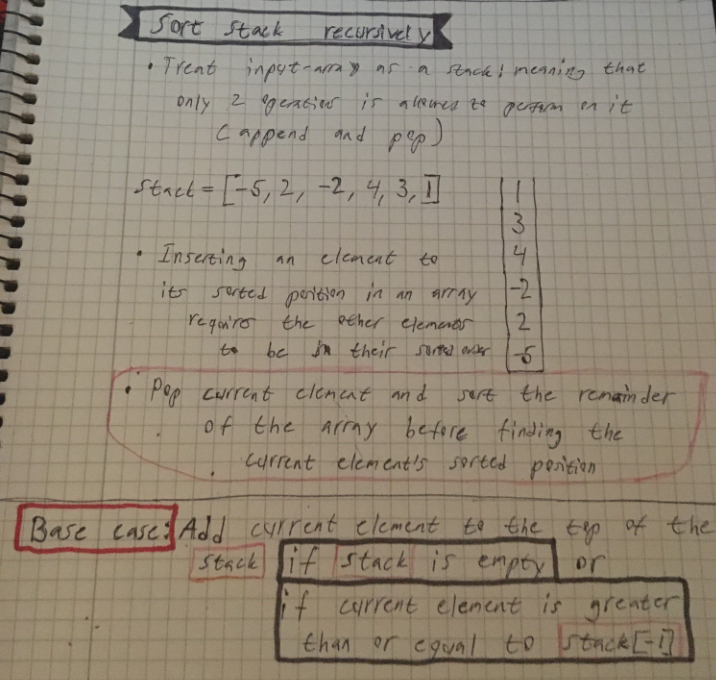 Sort stack recursively
• Treat input-array as a stack; meaning that
only 2 operation is allowed to perform on it
(append and pop)
stack = [-5, 2, -2, 4, 3, 1]
1
3
4
-2
2
-5
• Inserting an element to
its sorted position in an array
requires the other elements
to be in their sorted order
• Pop current element and sort the remainder
of the array before finding the
current element's sorted position
Base case: Add current element to the top of the
stack if stack is empty or
if current element is greater
than or equal to stack[-1]